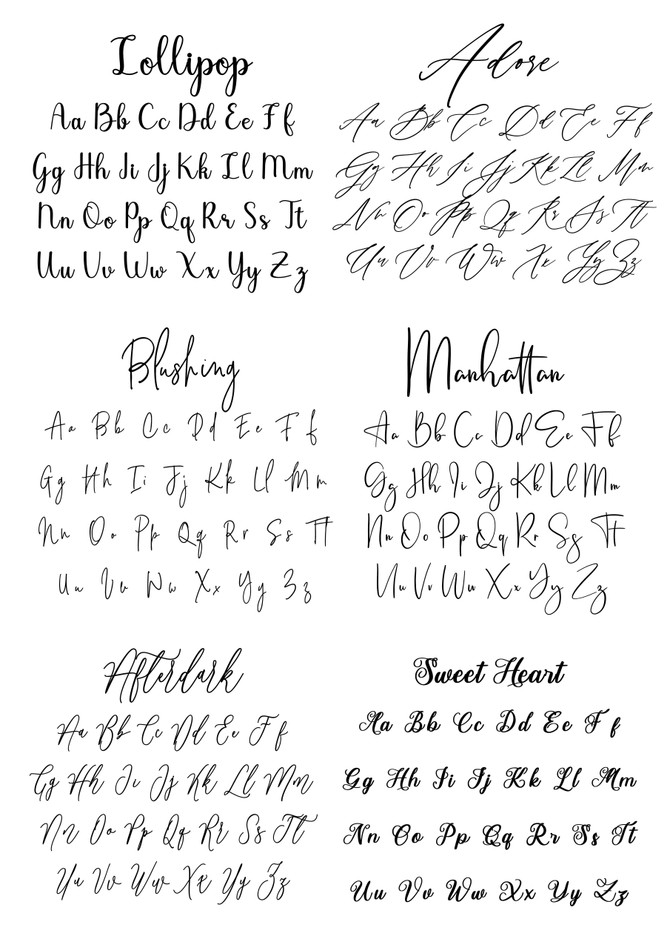 Lollipop
Aa Bb Cc Dd Ee Ff
Gg Hh Ii Jj Kk Ll Mm
Nn Oo Pp Qq Rr Ss Tt
Uu Vv Ww Xx Yy Zz
Adore
Aa Bb Cc Dd Ee Ff
Gg Hh Ii Jj Kk Ll Mm
Nn Oo Pp Qq Rr Ss Tt
Uu Vv Ww Xx Yy Zz
Blushing
Aa Bb Cc Dd Ee Ff
Gg Hh Ii Jj Kk Ll Mm
Nn Oo Pp Qq Rr Ss Tt
Uu Vv Ww Xx Yy Zz
Manhattan
Aa Bb Cc Dd Ee Ff
Gg Hh Ii Jj Kk Ll Mm
Nn Oo Pp Qq Rr Ss Tt
Uu Vv Ww Xx Yy Zz
Afterdark
Aa Bb Cc Dd Ee Ff
Gg Hh Ii Jj Kk Ll Mm
Nn Oo Pp Qq Rr Ss Tt
Uu Vv Ww Xx Yy Zz
Sweet Heart
Aa Bb Cc Dd Ee Ff
Gg Hh Ii Jj Kk Ll Mm
Nn Oo Pp Qq Rr Ss Tt
Uu Vv Ww Xx Yy Zz